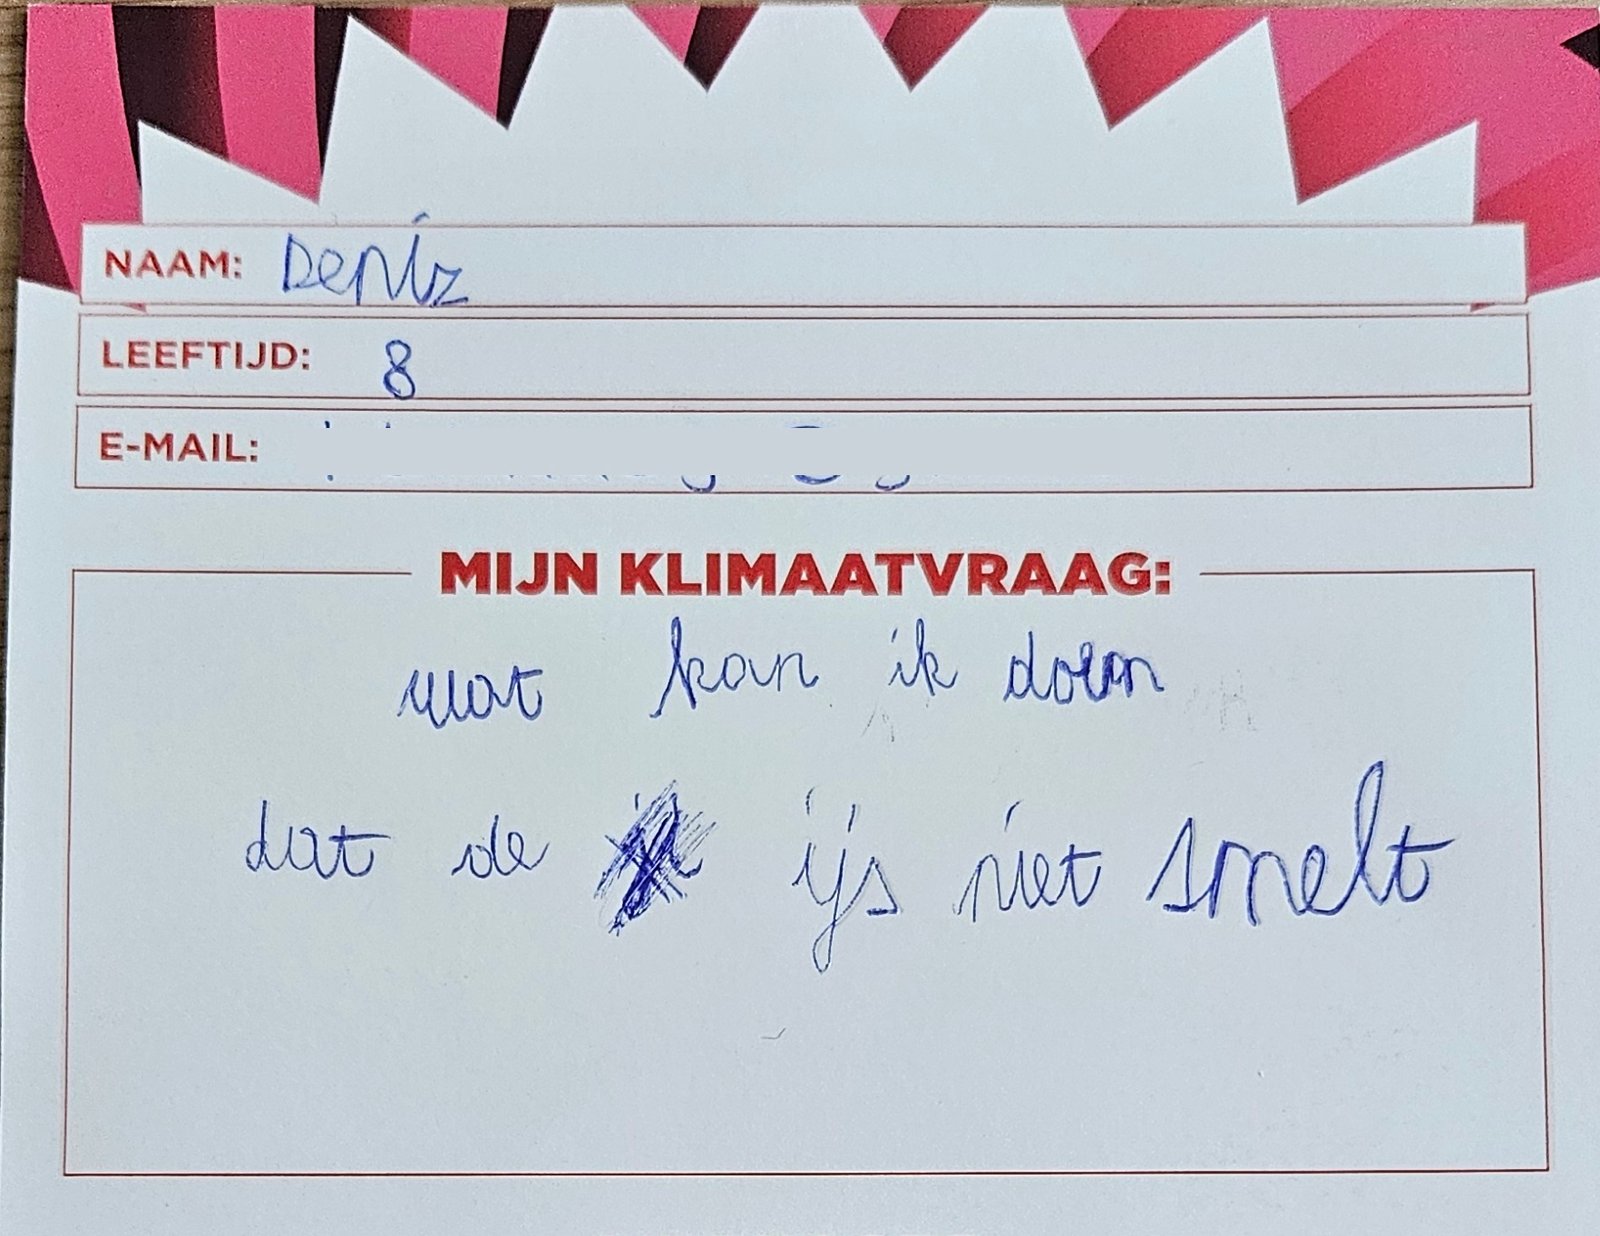 NAAM: Deniz
LEEFTIJD: 8
E-MAIL:
MIJN KLIMAATVRAAG:
wat kan ik doen
dat de ijs niet smelt